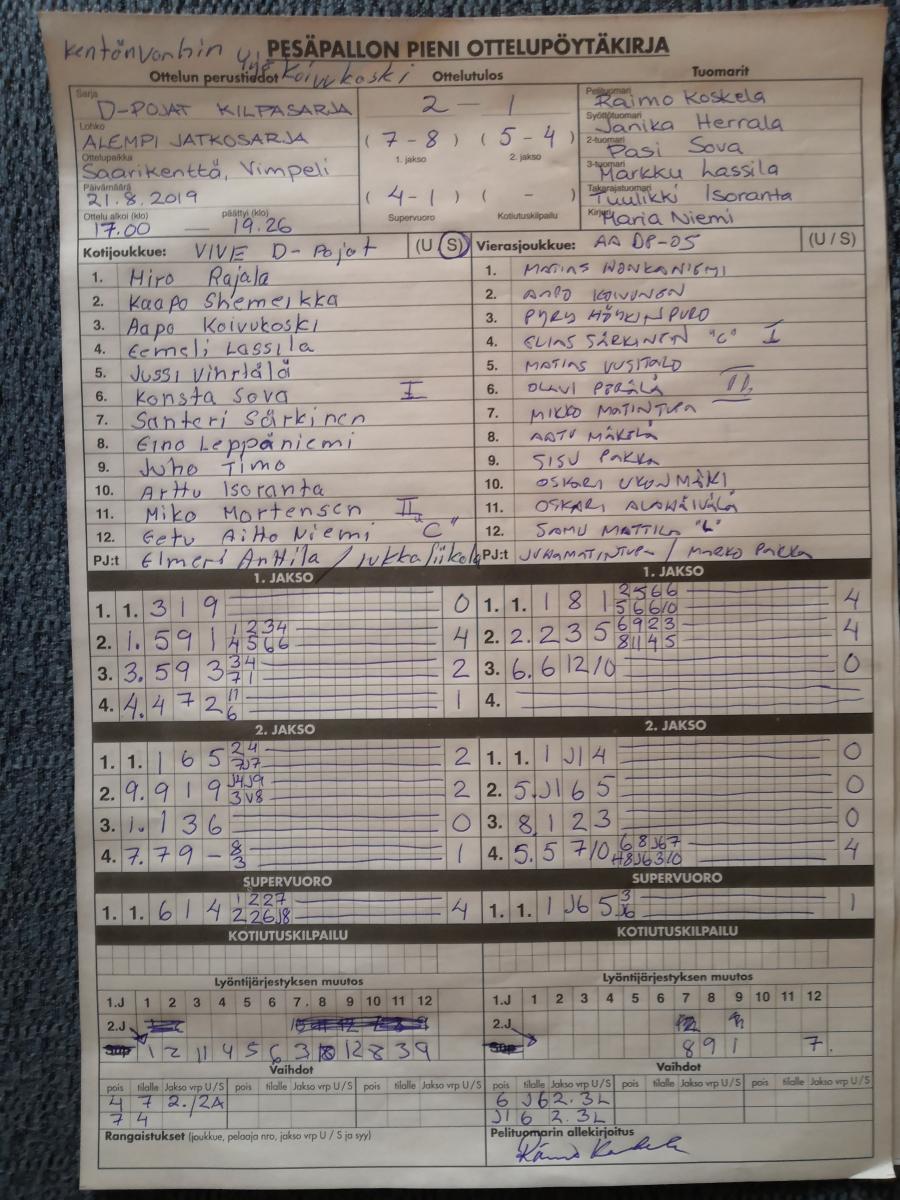 Kentänvanhin
PESÄPALLON PIENI OTTELUPÖYTÄKIRJA
Koivukoski
Ottelun perustiedot
Ottelutulos
Tuomarit
Sarja
D-POJAT KILPASARJA
Lohko
ALEMPI JATKOSARJA
Ottelupaikka
Saarikenttä, Vimpeli
Päivämäärä
21.8.2019
Ottelu alkoi (klo) päättyi (klo)
17.00 — 19.26
2 - 1
(7-8) (5-4)
1. jakso 2. jakso
(4-1) ( - )
Supervuoro Kotiutuskilpailu
Pelituomari
Raimo Koskela
Syöttötuomari
Janika Herrala
2-tuomari
Pasi Sova
3-tuomari
Markku Lassila
Takarajatuomari
Tuulikki Isoranta
Kirjuri
Maria Niemi
Kotijoukkue: VIVE D-Pojat (U S)
1. Miro Rajala
2. Kaapo Shemeikka
3. Aapo Koivukoski
4. Eemeli Lassila
5. Jussi Vihriälä
6. Konsta Sova I
7. Santeri Särkinen
8. Eino Leppäniemi
9. Juho Timo
10. Arttu Isoranta
11. Miko Mortensen II
12. Eetu Aitto Niemi "C"
PJ:t Elmeri Anttila / Jukka Liikala
Vierasjoukkue: AA DP-05 (U / S)
1. MATIAS HONKANIEMI
2. AAPO KOIVUNEN
3. PYRY HÖYKINPURO
4. ELIAS SÄRKINEN "C" I
5. MATIAS UUSITALO
6. OLAVI PERÄLÄ II
7. MIKKO MATINTUPA
8. AATU MÄKELÄ
9. SISU PAKKA
10. OSKARI UKONMÄKI
11. OSKARI
12. SAMU MATTILA "L"
PJ:t JUHA MATINTUPA / MARKO PAKKA
1. JAKSO
1. 1. 3 1 9 0
2. 1. 5 9 1 1234 4566 4
3. 3. 5 9 3 34 71 2
4. 4. 4 7 2 11 6 1
2. JAKSO
1. 1. 1 6 5 24 7J7 2
2. 9. 9 1 9 J4J9 3V8 2
3. 1. 1 3 6 0
4. 7. 7 9 - 8 3 1
SUPERVUORO
1. 1. 6 1 4 1227 226J8 4
1. JAKSO
1. 1. 1 8 1 2566 56610 4
2. 2. 2 3 5 6923 81145 4
3. 6. 6 12 10 0
4.
2. JAKSO
1. 1. 1 J1 4 0
2. 5. J1 6 5 0
3. 8. 1 2 3 0
4. 5. 5 7 10 68J67 48J6310 4
SUPERVUORO
1. 1. 1 J6 5 3 J6 1
KOTIUTUSKILPAILU
KOTIUTUSKILPAILU
Lyöntijärjestyksen muutos
1.J 1 2 3 4 5 6 7. 8 9 10 11 12
2.J
1 2 11 4 5 6 3 10 12 8 3 9
Lyöntijärjestyksen muutos
1.J 1 2 3 4 5 6 7 8 9 10 11 12
2.J
8 9 1 7.
Vaihdot
pois tilalle Jakso vrp U / S pois tilalle Jakso vrp U / S pois tilalle Jakso vrp U / S
4 7 2./2A
7 4
Vaihdot
pois tilalle Jakso vrp U / S pois tilalle Jakso vrp U / S pois tilalle Jakso vrp U / S
6 J6 2. 3L
J1 6 2. 3L
Rangaistukset (joukkue, pelaaja nro, jakso vrp U / S ja syy)
Pelituomarin allekirjoitus